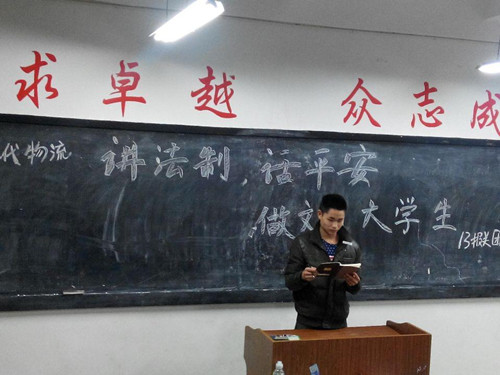 求卓越 众志成
代物流
讲法制,话平安
做文 大学生
13报关团